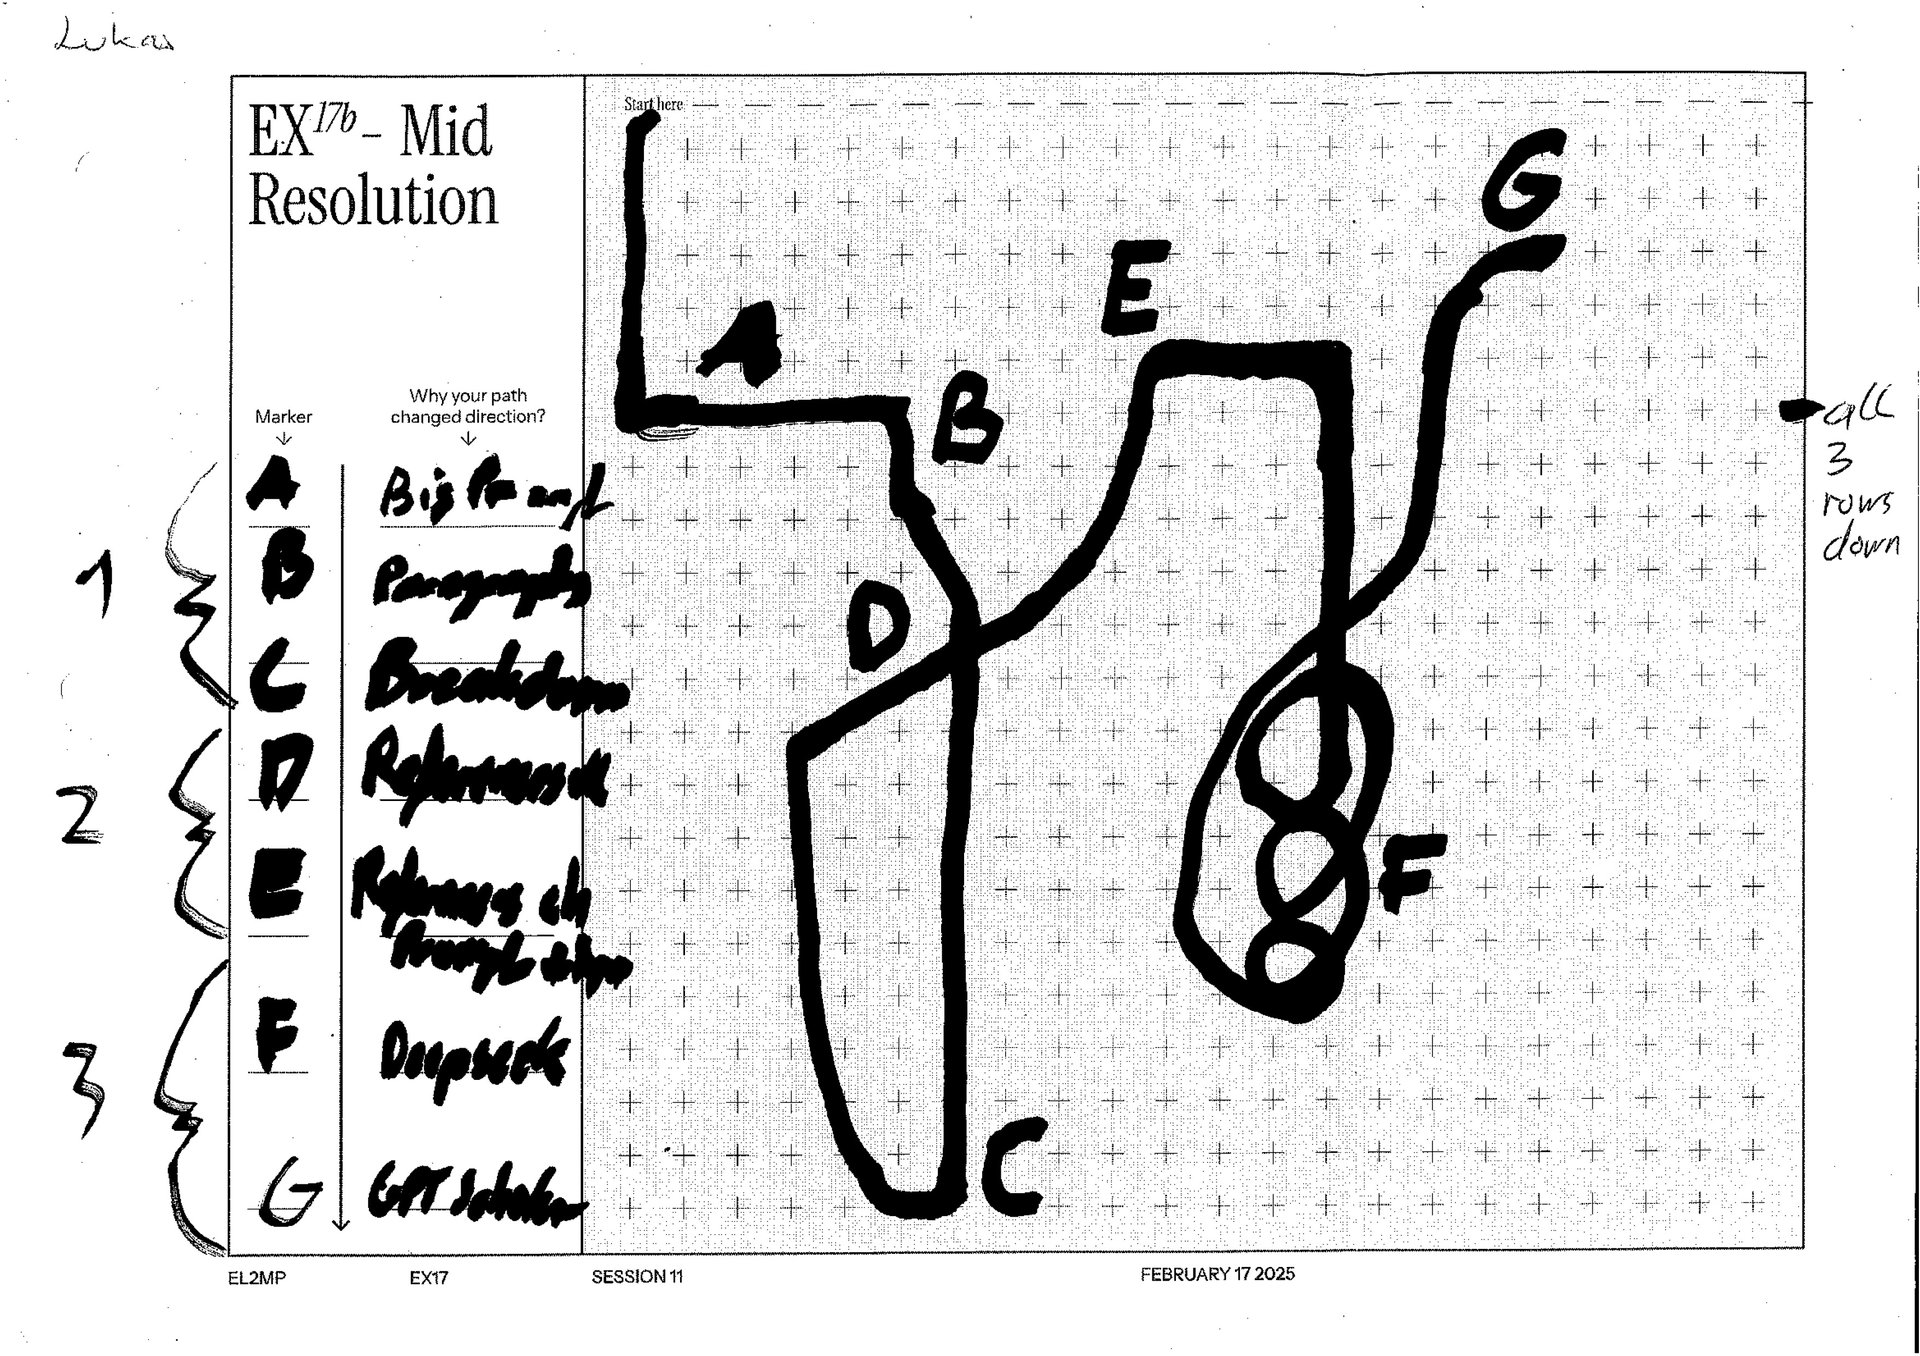 Lukas
EX17b – Mid
Resolution
Start here
Marker
Why your path
changed direction?
A
Big Prompt
B
Paragraphs
C
Breakdown
D
References
E
References
Prompt
F
Deepseek
G
GPT Scholar
1
2
3
A
B
C
D
E
F
G
all
3
rows
down
EL2MP
EX17
SESSION 11
FEBRUARY 17 2025